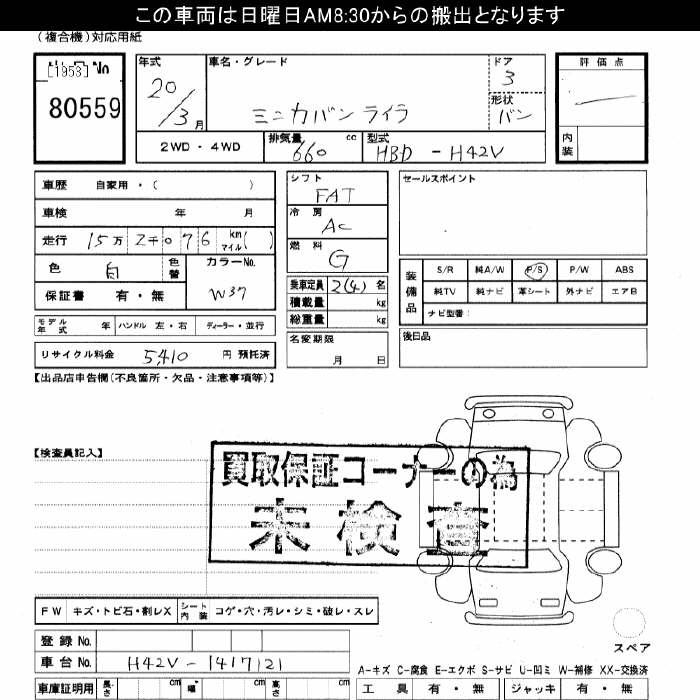 この車両は日曜日AM8:30からの搬出となります
(複合機)対応用紙
[1953] No
80559
年式
20/3月
車名・グレード
ミニカバン ライラ
ドア
3
形状
バン
評価点
内装
2WD・4WD
排気量 660 cc
型式 HBD - H42V
車歴 自家用・( )
車検 年 月
走行 15万2千076 km マイル( )
色 白 色替
カラーNo. W37
保証書 有・無
モデル年式 年 ハンドル 左・右 ディーラー・並行
リサイクル料金 5,410 円 預託済
シフト
FAT
冷房
AC
燃料
G
乗車定員 2(4) 名
積載量 kg
総重量 kg
名変期限
月 日
セールスポイント
装備品
S/R 純A/W P/S P/W ABS
純TV 純ナビ 革シート 外ナビ エアB
ナビ型番:
後日品
【出品店申告欄(不良箇所・欠品・注意事項等)】
【検査員記入】
買取保証コーナーの為
未検査
FW キズ・トビ石・割レX シート内装 コゲ・穴・汚レ・シミ・破レ・スレ
登録No.
車台No. H42V-1417121
車庫証明用 長さ cm 幅 cm 高さ cm
スペア
A-キズ C-腐食 E-エクボ S-サビ U-凹ミ W-補修 XX-交換済
工具 有・無 ジャッキ 有・無